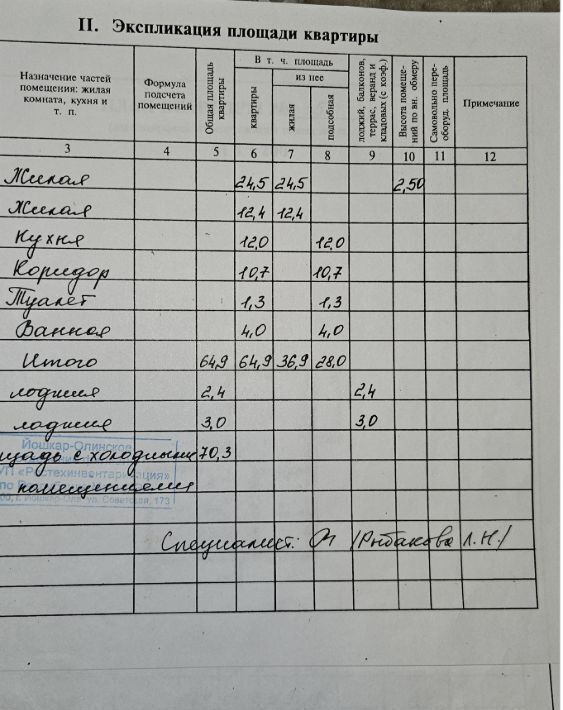 II. Экспликация площади квартиры
Назначение частей помещения: жилая комната, кухня и т. п.
Формула подсчета помещений
Общая площадь квартиры
В т. ч. площадь
квартиры
из нее
жилая
подсобная
лоджий, балконов, террас, веранд и кладовых (с коэф.)
Высота помещений по вн. обмеру
Самовольно переоборуд. площадь
Примечание
3 4 5 6 7 8 9 10 11 12
Жилая 24,5 24,5 2,50
Жилая 12,4 12,4
Кухня 12,0 12,0
Коридор 10,7 10,7
Туалет 1,3 1,3
Ванная 4,0 4,0
Итого 64,9 64,9 36,9 28,0
лоджия 2,4 2,4
лоджия 3,0 3,0
Йошкар-Олинское
щадь с холодными 70,3
УП «Ростехинвентаризация»
помещениями
г. Йошкар-Ола, ул. Советская, 173
Специалист: /Рыбакова Л.Н./